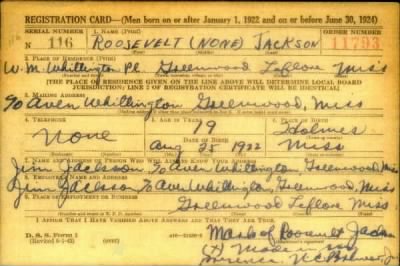 REGISTRATION CARD—(Men born on or after January 1, 1922 and on or before June 30, 1924)
SERIAL NUMBER
1. NAME (Print)
ORDER NUMBER
N 116
ROOSEVELT (NONE) JACKSON
11793
2. PLACE OF RESIDENCE (Print)
W. M. Whillington Pl Greenwood Leflore Miss
[THE PLACE OF RESIDENCE GIVEN ON THE LINE ABOVE WILL DETERMINE LOCAL BOARD
JURISDICTION; LINE 2 OF REGISTRATION CERTIFICATE WILL BE IDENTICAL]
3. MAILING ADDRESS
% Aven Whillington, Greenwood, Miss
4. TELEPHONE
5. AGE IN YEARS
6. PLACE OF BIRTH
19
Holmes
None
DATE OF BIRTH
Aug 25 1922
Miss
7. NAME AND ADDRESS OF PERSON WHO WILL ALWAYS KNOW YOUR ADDRESS
Jim Jackson % Aven Whillington, Greenwood, Miss
8. EMPLOYER'S NAME AND ADDRESS
Jim Jackson % Aven Whillington, Greenwood, Miss
9. PLACE OF EMPLOYMENT OR BUSINESS
Greenwood Leflore Miss
I AFFIRM THAT I HAVE VERIFIED ABOVE ANSWERS AND THAT THEY ARE TRUE.
D. S. S. Form 1
Mark of Roosevelt Jackson
(X) Made in my
presence.